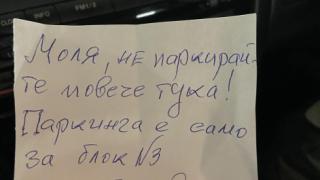 INFO
FM1/2
Моля, не паркирай-
те повече тука!
Паркинга е само
за блок №3